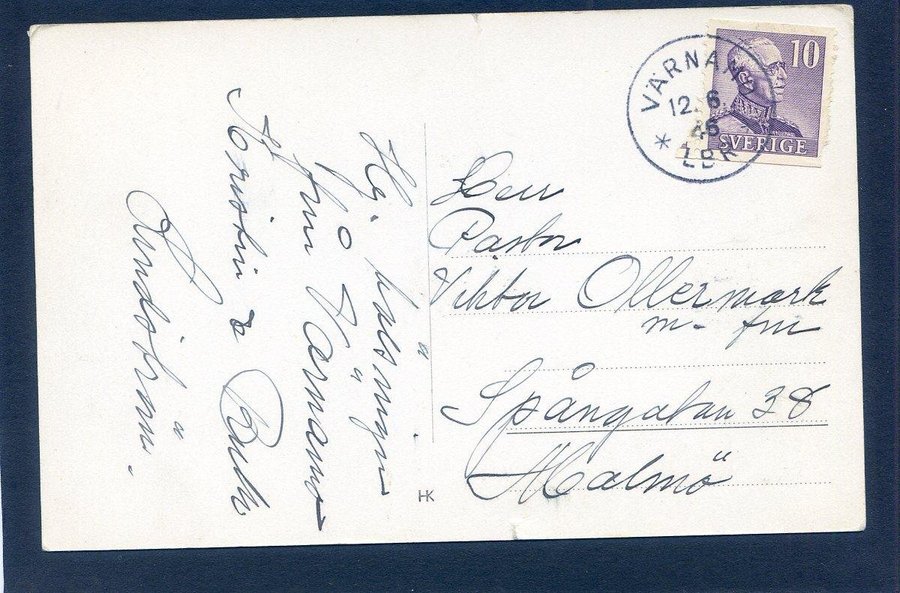 Hj. hälsningar
från Värnamo
Kristin &
VÄRNAMO
12.6.
46
* LBR
10
SVERIGE
Herr
Pastor
Viktor Ollermark
m. fru
Spångatan 38
Malmö
HK